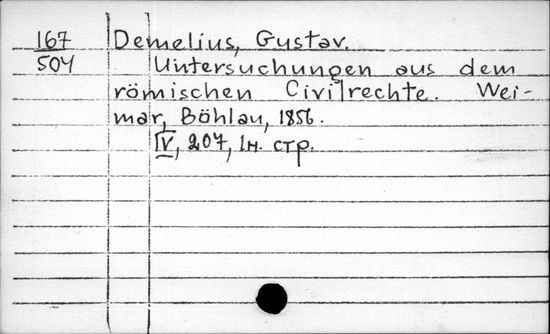 167 Demelius, Gustav.
504 Untersuchungen aus dem
römischen Civilrechte. Wei-
mar, Böhlau, 1856.
IV, 207, 1н. стр.